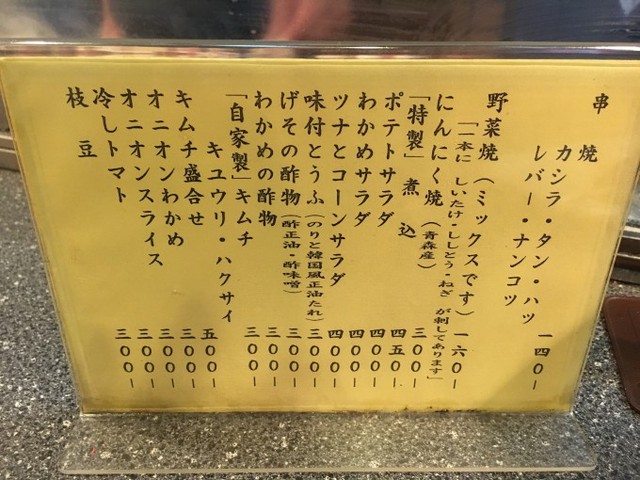 串焼
カシラ・タン・ハツ
レバー・ナンコツ 一四〇-
野菜焼（ミックスです）一六〇-
「一本に しいたけ・ししとう・ねぎ が刺してあります」
にんにく焼（青森産）三〇〇-
「特製」煮込 四五〇-
ポテトサラダ 四〇〇-
わかめサラダ 四〇〇-
ツナとコーンサラダ 四〇〇-
味付とうふ（のりと韓国風正油たれ）三〇〇-
げその酢物（酢正油・酢味噌）三〇〇-
わかめの酢物 三〇〇-
「自家製」キムチ 三〇〇-
キユウリ・ハクサイ
キムチ盛合せ 五〇〇-
オニオンわかめ 三〇〇-
オニオンスライス 三〇〇-
冷しトマト 三〇〇-
枝豆 三〇〇-